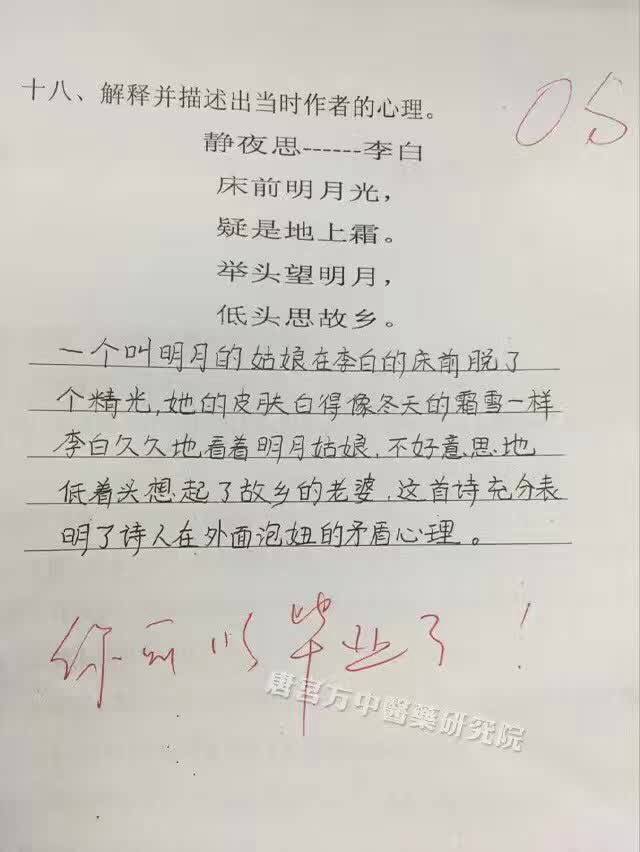 十八、解释并描述出当时作者的心理。
05
静夜思------李白
床前明月光，
疑是地上霜。
举头望明月，
低头思故乡。
一个叫明月的姑娘在李白的床前脱了
个精光，她的皮肤白得像冬天的霜雪一样
李白久久地看着明月姑娘，不好意思地
低着头想起了故乡的老婆，这首诗充分表
明了诗人在外面泡妞的矛盾心理。
你可以毕业了！
唐名万中醫藥研究院